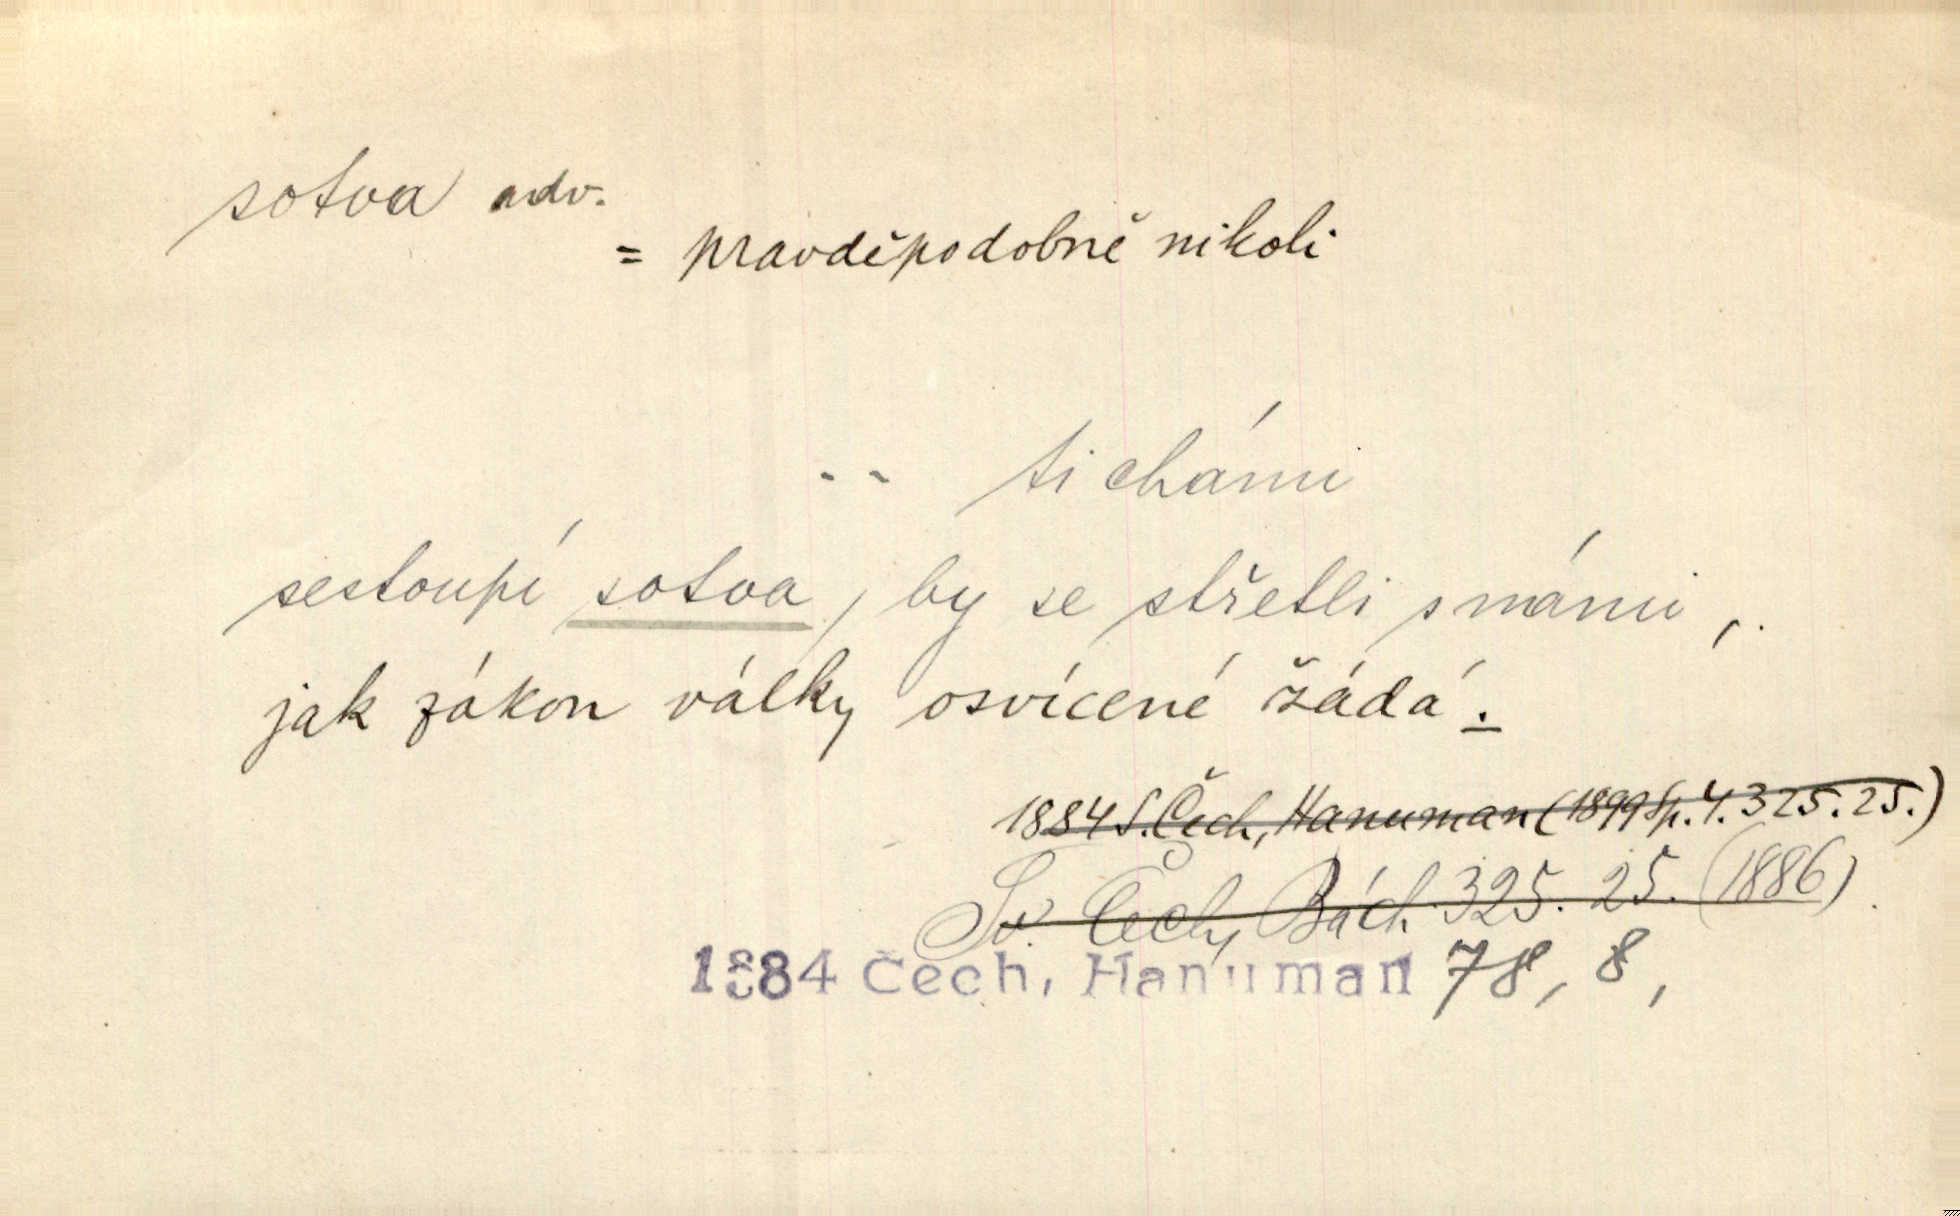 sotva adv.
= pravděpodobně nikoli
-- ti chámi
sestoupí sotva, by se střetli s námi,
jak zákon války osvícené žádá.
1884 S. Čech, Hanuman (1899 Sp. 4. 325. 25.)
Sv. Čech, Bách. 325. 25. (1886)
1884 Čech, Hanuman 78, 8,